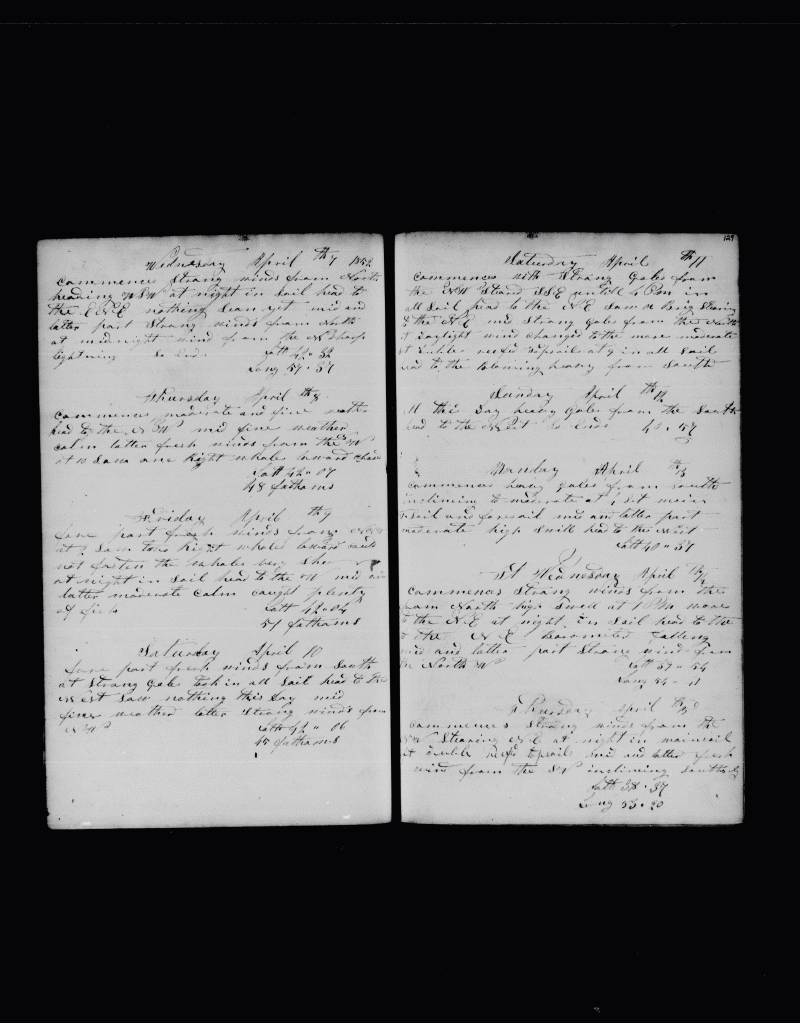 Wednesday April th7 1852
commences Strong winds from North
heading WSW at night in Sail head to
the ENE nothing Sean yet mid and
latter part Strong winds from North
at midnight wind from the N Sharp
lightning So Ends Latt 42 " 32
Long 57 " 37
Thursday April th8
commences moderate and fine weather
head to the NW mid fine weather
calm latter fresh winds from the W
at 10 Saw one Right whale lowerd chase
Latt 42 " 07
48 fathoms
Friday April th9
fore part fresh winds from
at Saw two Right whales lowerd could
not fasten the whales very Shy
at night in Sail head to the W mid and
latter moderate Calm caught plenty
of fish Latt 42 " 04
51 fathoms
Saturday April 10
fore part fresh winds from South
at Strong Gales took in all Sail head to the
West Saw nothing this Day mid
fine weather latter Strong winds from
NW Latt 42 " 06
45 fathoms
129
Saturday April th11
commences with Strong Gales from
the NW Steard SSE untill 4 Pm in
all Sail head to the NE Saw a Brig Stearing
to the NE mid Strong Gales from the North
at Daylight wind changes to the more moderate
at 9 in all Sail
head to the Blowing heavy from South
Sunday April th12
All this Day heavy Gales from the South
head to the West So Ends 40 " 57
Monday April th13
commences heavy gales from South
inclineing to moderate at Set main
and foresail mid and latter part
moderate high Swell head to the West
Latt 40 " 37
St Wednesday April
commences Strong winds from the
from North high Swell at 1 Pm
to the NE at night in Sail head to the
to the NE barometer falling
mid and latter part Strong wind from
the North W Latt 39 " 54
Long 54 " 11
Thursday April
commences Strong winds from the
NW Stearing NE at night in mainsail
double reefs topsail mid and latter fresh
wind from the SW inclineing Southerly
Latt 38 " 37
Long 53 " 20